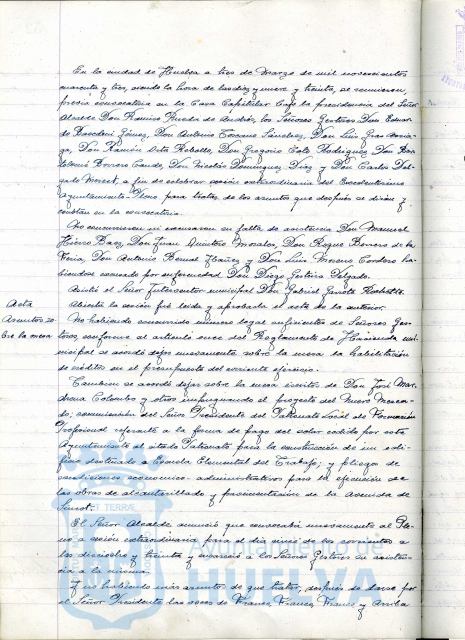 En la ciudad de Huelva a tres de Marzo de mil novecientos
cuarenta y tres, siendo la hora de las diez y nueve y treinta, se reunieron
previa convocatoria en la Casa Capitular bajo la presidencia del Señor
Alcalde Don Ramiro Rueda de Andrés, los Señores Gestores Don Eduar
do Gómez, Don Antonio Sánchez, Don Luis
Don Ramón Rebollo, Don Gregorio Rodríguez, Don Bar
tolomé Borrero Conde, Don Nicolás Domínguez Díaz y Don Carlos Del
gado a fin de celebrar sesión extraordinaria del Excelentísimo
Ayuntamiento Pleno para tratar de los asuntos que después se dirán y
constan en la convocatoria.
No concurrieron ni excusaron su falta de asistencia Don Manuel
Hierro Báez, Don Juan Quintero Morales, Don Roque Borrero de la
Feria, Don Antonio Ibáñez y Don Luis Moreno Cordero ha
biéndose excusado por enfermedad Don Diego Delgado.
Asistió el Señor Interventor municipal Don Gabriel
Acta
Abierta la sesión fué leída y aprobada el acta de la anterior.
Asuntos so-
bre la mesa
No habiendo concurrido número legal suficiente de Señores Ges
tores, conforme al artículo once del Reglamento de Hacienda mu
nicipal se acordó dejar nuevamente sobre la mesa la habilitación
de créditos en el presupuesto del corriente ejercicio.
También se acordó dejar sobre la mesa escritos de Don José Mar
chena Colombo y otros impugnando el proyecto del Nuevo Merca
do; comunicación del Señor Presidente del Patronato Local de Formación
Profesional referente a la forma de pago del solar cedido por este
Ayuntamiento al citado Patronato para la construcción de un edi
ficio destinado a Escuela Elemental del Trabajo; y pliegos de
condiciones económico-administrativas para la ejecución de
las obras de alcantarillado y pavimentación de la Avenida de
El Señor Alcalde anunció que convocaría nuevamente al Ple
no a sesión extraordinaria para el día cinco de los corrientes a
las diecisiete y treinta y encareció a los Señores Gestores su asisten
cia a la misma.
Y no habiendo más asuntos de que tratar, después de darse por
el Señor Presidente las voces de Franco, Franco, Franco y Arriba
Ayuntamiento de
HUELVA